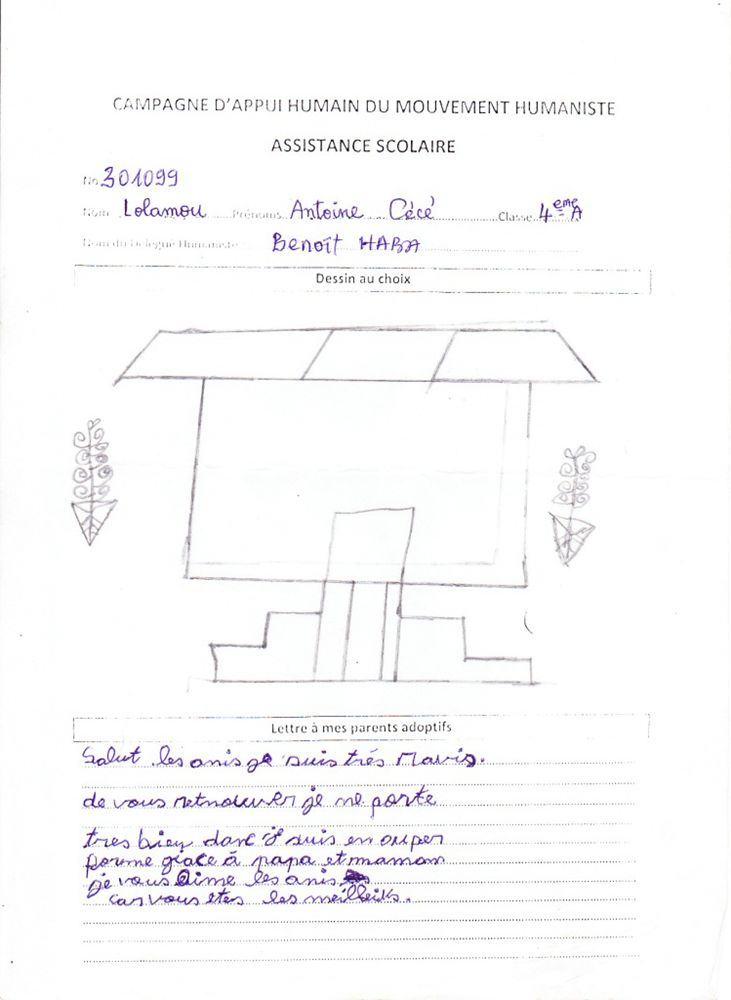 CAMPAGNE D'APPUI HUMAIN DU MOUVEMENT HUMANISTE
ASSISTANCE SCOLAIRE
No 301099
Nom Lolamou Prénoms Antoine Cécé Classe 4eme A
Nom du Délégué Humaniste Benoît HABA
Dessin au choix
Lettre à mes parents adoptifs
Salut les amis je suis très Mavis.
de vous retnouver je me porte
tres bien donc je suis en super
forme grace à papa et maman
je vous aime les amis
car vous etes les meilleirs.